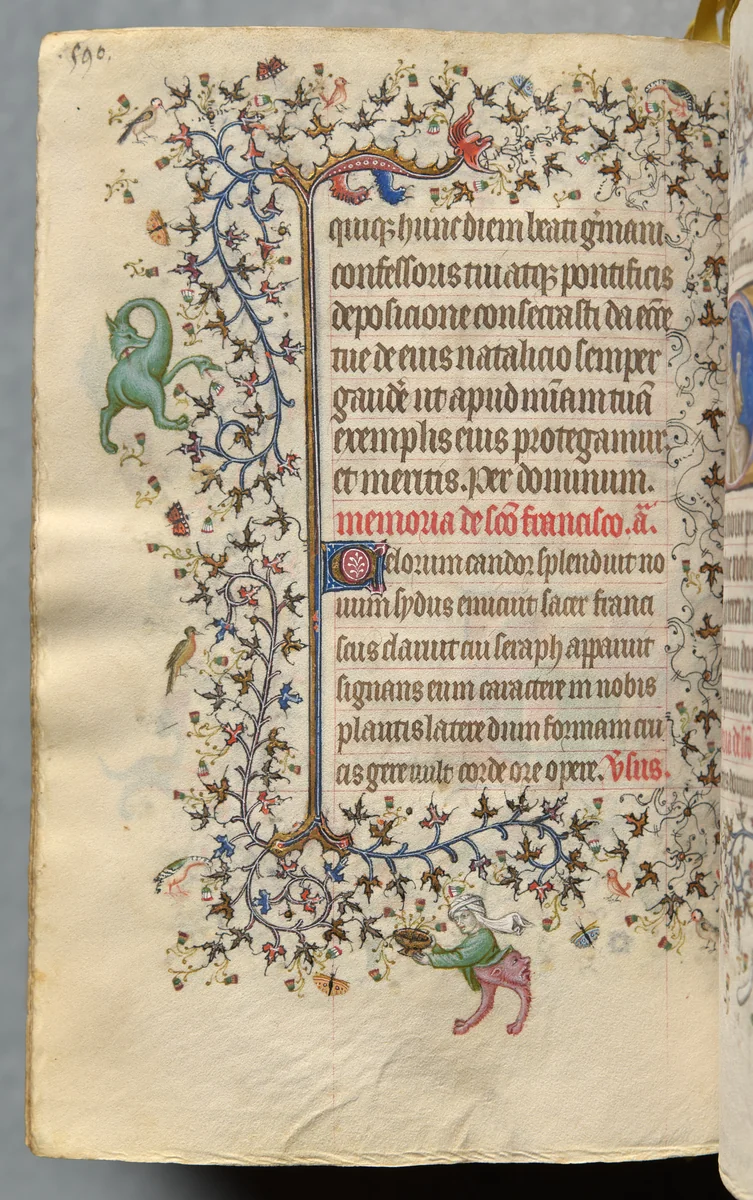 590.
quiqꝫ hunc diem beati gʹmani
confessoris tui atqꝫ pontificis
deposicione consecrasti da eccʹe
tue de eius natalicio semper
gaudēʹ ut apud mīam tuā
exemplis eius protegamur
et meritis. Per dominum.
memoria de sc̄o francisco. a᷒.
Celorum candor splenduit no
uum sydus emicuit sacer franci
scus claruit cui seraph apparuit
signans eum caractere in uobis
plantis latere dum formam cru
cis gere uult corde ore opere. v̄sus.